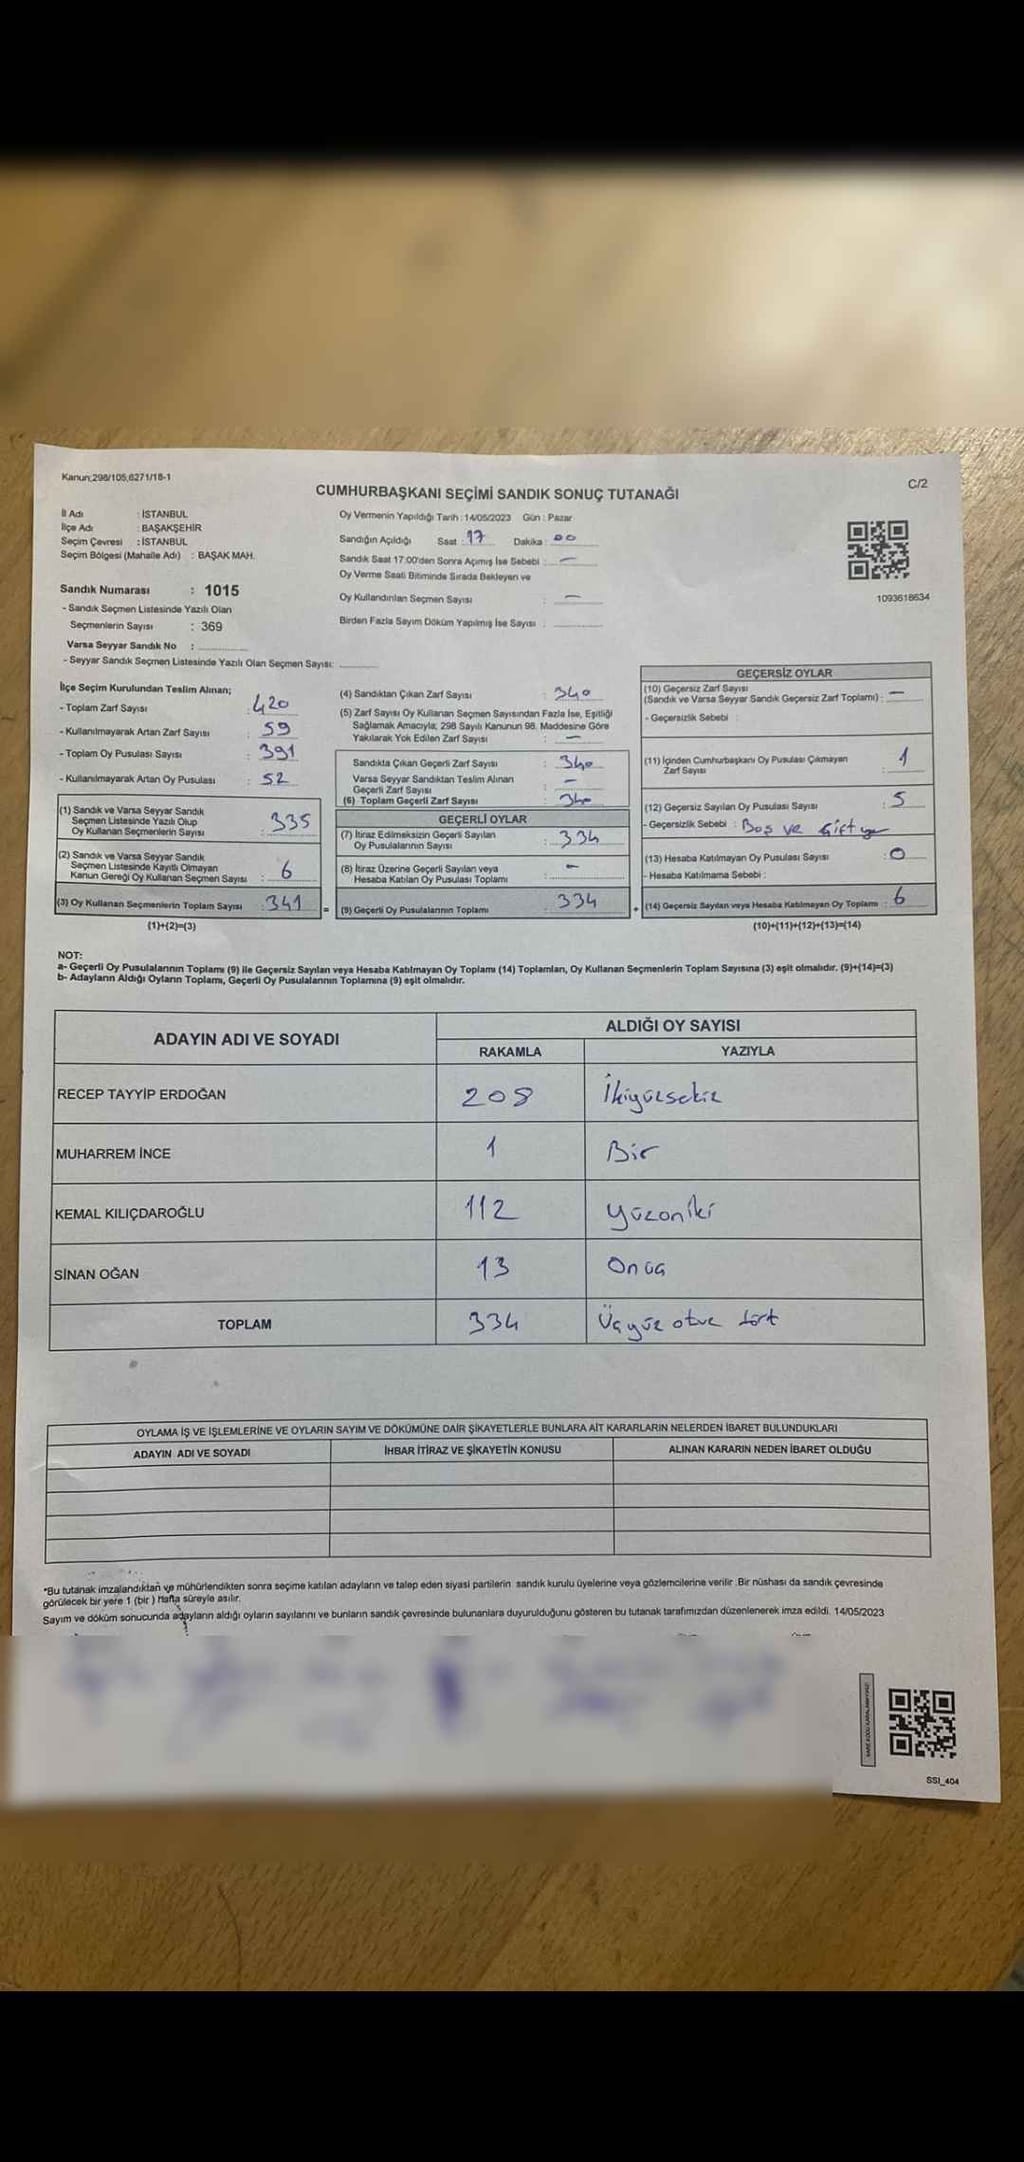 Kanun;298/105,6271/18-1
C/2
CUMHURBAŞKANI SEÇİMİ SANDIK SONUÇ TUTANAĞI
İl Adı : İSTANBUL
İlçe Adı : BAŞAKŞEHİR
Seçim Çevresi : İSTANBUL
Seçim Bölgesi (Mahalle Adı) : BAŞAK MAH.
Sandık Numarası : 1015
- Sandık Seçmen Listesinde Yazılı Olan
Seçmenlerin Sayısı : 369
Varsa Seyyar Sandık No :
- Seyyar Sandık Seçmen Listesinde Yazılı Olan Seçmen Sayısı:
Oy Vermenin Yapıldığı Tarih : 14/05/2023 Gün : Pazar
Sandığın Açıldığı Saat : 17 Dakika : 00
Sandık Saat 17:00'den Sonra Açımış İse Sebebi : —
Oy Verme Saati Bitiminde Sırada Bekleyen ve
Oy Kullandırılan Seçmen Sayısı : —
Birden Fazla Sayım Döküm Yapılmış İse Sayısı :
1093618634
İlçe Seçim Kurulundan Teslim Alınan;
- Toplam Zarf Sayısı : 420
- Kullanılmayarak Artan Zarf Sayısı : 59
- Toplam Oy Pusulası Sayısı : 391
- Kullanılmayarak Artan Oy Pusulası : 52
(1) Sandık ve Varsa Seyyar Sandık
Seçmen Listesinde Yazılı Olup
Oy Kullanan Seçmenlerin Sayısı : 335
(2) Sandık ve Varsa Seyyar Sandık
Seçmen Listesinde Kayıtlı Olmayan
Kanun Gereği Oy Kullanan Seçmen Sayısı : 6
(3) Oy Kullanan Seçmenlerin Toplam Sayısı : 341
(1)+(2)=(3)
=
(4) Sandıktan Çıkan Zarf Sayısı : 340
(5) Zarf Sayısı Oy Kullanan Seçmen Sayısından Fazla İse, Eşitliği
Sağlamak Amacıyla; 298 Sayılı Kanunun 98. Maddesine Göre
Yakılarak Yok Edilen Zarf Sayısı : —
Sandıkta Çıkan Geçerli Zarf Sayısı : 340
Varsa Seyyar Sandıktan Teslim Alınan
Geçerli Zarf Sayısı : —
(6) Toplam Geçerli Zarf Sayısı : 340
GEÇERLİ OYLAR
(7) İtiraz Edilmeksizin Geçerli Sayılan
Oy Pusulalarının Sayısı : 334
(8) İtiraz Üzerine Geçerli Sayılan veya
Hesaba Katılan Oy Pusulası Toplamı : —
(9) Geçerli Oy Pusulalarının Toplamı : 334
+
GEÇERSİZ OYLAR
(10) Geçersiz Zarf Sayısı
(Sandık ve Varsa Seyyar Sandık Geçersiz Zarf Toplamı) : —
- Geçersizlik Sebebi :
(11) İçinden Cumhurbaşkanı Oy Pusulası Çıkmayan
Zarf Sayısı : 1
(12) Geçersiz Sayılan Oy Pusulası Sayısı : 5
- Geçersizlik Sebebi : Boş ve Çift
(13) Hesaba Katılmayan Oy Pusulası Sayısı : 0
- Hesaba Katılmama Sebebi :
(14) Geçersiz Sayılan veya Hesaba Katılmayan Oy Toplamı : 6
(10)+(11)+(12)+(13)=(14)
NOT:
a- Geçerli Oy Pusulalarının Toplamı (9) ile Geçersiz Sayılan veya Hesaba Katılmayan Oy Toplamı (14) Toplamları, Oy Kullanan Seçmenlerin Toplam Sayısına (3) eşit olmalıdır. (9)+(14)=(3)
b- Adayların Aldığı Oyların Toplamı, Geçerli Oy Pusulalarının Toplamına (9) eşit olmalıdır.
ADAYIN ADI VE SOYADI ALDIĞI OY SAYISI
RAKAMLA YAZIYLA
RECEP TAYYİP ERDOĞAN 208 İkiyüzsekiz
MUHARREM İNCE 1 Bir
KEMAL KILIÇDAROĞLU 112 yüzoniki
SİNAN OĞAN 13 Onüç
TOPLAM 334 Üçyüz otuz dört
OYLAMA İŞ VE İŞLEMLERİNE VE OYLARIN SAYIM VE DÖKÜMÜNE DAİR ŞİKAYETLERLE BUNLARA AİT KARARLARIN NELERDEN İBARET BULUNDUKLARI
ADAYIN ADI VE SOYADI İHBAR İTİRAZ VE ŞİKAYETİN KONUSU ALINAN KARARIN NEDEN İBARET OLDUĞU
*Bu tutanak imzalandıktan ve mühürlendikten sonra seçime katılan adayların ve talep eden siyasi partilerin sandık kurulu üyelerine veya gözlemcilerine verilir. Bir nüshası da sandık çevresinde
görülecek bir yere 1 (bir ) Hafta süreyle asılır.
Sayım ve döküm sonucunda adayların aldığı oyların sayılarını ve bunların sandık çevresinde bulunanlara duyurulduğunu gösteren bu tutanak tarafımızdan düzenlenerek imza edildi. 14/05/2023
SSI_404